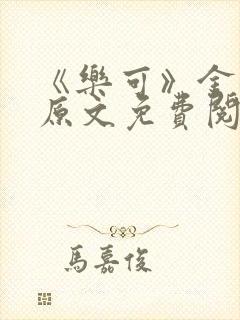 《樂可》全
原文免費閱
馬嘉俊